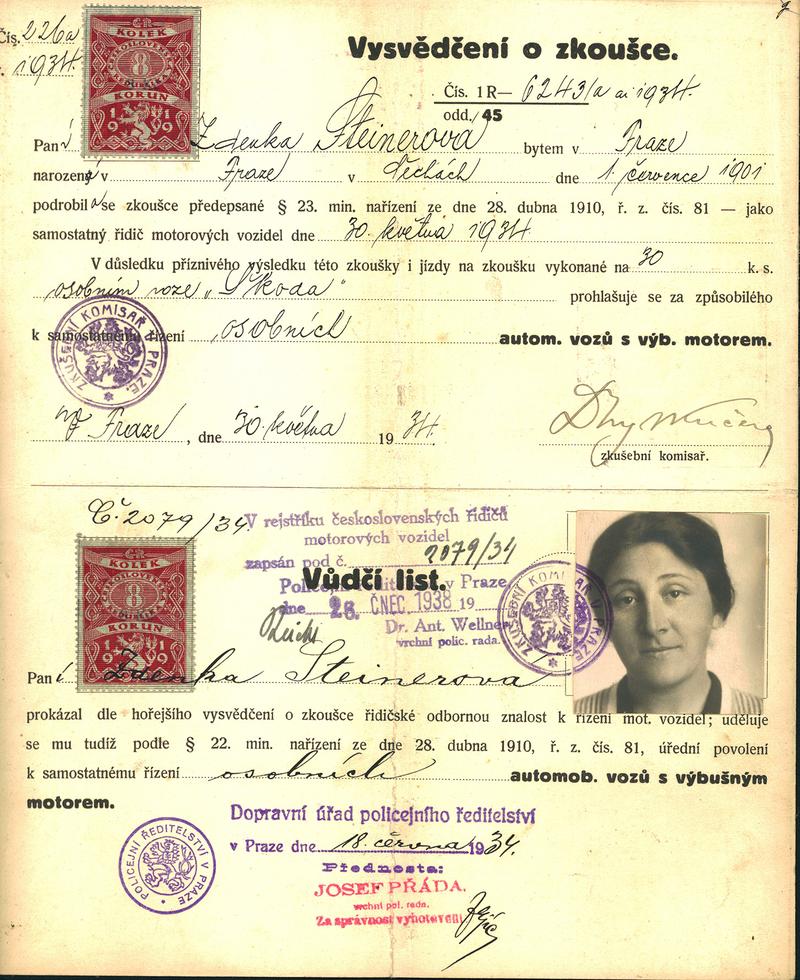 Čís. 226a
1934.
ČR
KOLEK
8
KORUN
1919
Vysvědčení o zkoušce.
Čís. 1R— 6243/a ai 1934.
odd./45
Paní Zdenka Steinerová bytem v Praze
narozená v Praze v Čechách dne 1. července 1901
podrobila se zkoušce předepsané § 23. min. nařízení ze dne 28. dubna 1910, ř. z. čís. 81 — jako
samostatný řidič motorových vozidel dne 30. května 1934
V důsledku příznivého výsledku této zkoušky i jízdy na zkoušku vykonané na 30 k. s.
osobním voze „Škoda" prohlašuje se za způsobilého
k samostatnému řízení osobních autom. vozů s výb. motorem.
ZKUŠEBNÍ KOMISAŘ V PRAZE
V Praze, dne 30. května 1934.
zkušební komisař.
Č. 2079/34
V rejstříku československých řidičů
motorových vozidel
zapsán pod č. 2079/34
Vůdčí list.
v Praze
dne 28. ČNEC. 1938 19
Dr. Ant. Wellner
vrchní polic. rada.
ZKUŠEBNÍ KOMISAŘ V PRAZE
ČR
KOLEK
8
KORUN
1919
Paní Zdenka Steinerova
prokázal dle hořejšího vysvědčení o zkoušce řidičské odbornou znalost k řízení mot. vozidel; uděluje
se mu tudíž podle § 22. min. nařízení ze dne 28. dubna 1910, ř. z. čís. 81, úřední povolení
k samostatnému řízení osobních automob. vozů s výbušným
motorem.
Dopravní úřad policejního ředitelství
v Praze dne 18. června 1934.
POLICEJNÍ ŘEDITELSTVÍ V PRAZE
Přednosta:
JOSEF PŘÁDA.
vrchní pol. rada.
Za správnost vyhotovení